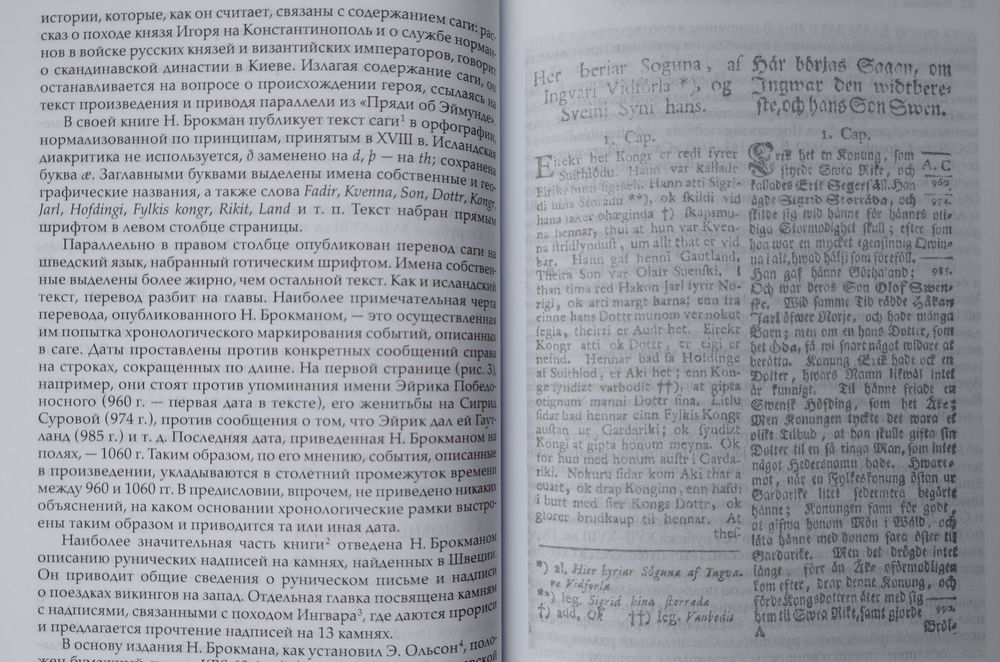 истории, которые, как он считает, связаны с содержанием саги: рас-
сказ о походе князя Игоря на Константинополь и о службе норман-
нов в войске русских князей и византийских императоров, говорит
о скандинавской династии в Киеве. Излагая содержание саги, он
останавливается на вопросе о происхождении героя, ссылаясь на
текст произведения и приводя параллели из «Пряди об Эймунде».
В своей книге Н. Брокман публикует текст саги¹ в орфографии,
нормализованной по принципам, принятым в XVIII в. Исландская
диакритика не используется, ð заменено на d, þ — на th; сохранена
буква æ. Заглавными буквами выделены имена собственные и гео-
графические названия, а также слова Fadir, Kvenna, Son, Dottr, Kongr,
Jarl, Hofdingi, Fylkis kongr, Rikit, Land и т. п. Текст набран прямым
шрифтом в левом столбце страницы.
Параллельно в правом столбце опубликован перевод саги на
шведский язык, набранный готическим шрифтом. Имена собствен-
ные выделены более жирно, чем остальной текст. Как и исландский
текст, перевод разбит на главы. Наиболее примечательная черта
перевода, опубликованного Н. Брокманом, — это осуществленная
им попытка хронологического маркирования событий, описанных
в саге. Даты проставлены против конкретных сообщений справа
на строках, сокращенных по длине. На первой странице (рис. 3),
например, они стоят против упоминания имени Эйрика Победо-
носного (960 г. — первая дата в тексте), его женитьбы на Сигрид
Суровой (974 г.), против сообщения о том, что Эйрик дал ей Гаут-
ланд (985 г.) и т. д. Последняя дата, приведенная Н. Брокманом на
полях, — 1060 г. Таким образом, по его мнению, события, описанные
в произведении, укладываются в столетний промежуток времени
между 960 и 1060 гг. В предисловии, впрочем, не приведено никаких
объяснений, на каком основании хронологические рамки выстро-
ены таким образом и приводится та или иная дата.
Наиболее значительная часть книги² отведена Н. Брокманом
описанию рунических надписей на камнях, найденных в Швеции.
Он приводит общие сведения о руническом письме и надписи
о поездках викингов на запад. Отдельная главка посвящена камням
с надписями, связанными с походом Ингвара³, где даются прориси
и предлагается прочтение надписей на 13 камнях.
В основу издания Н. Брокмана, как установил Э. Ольсон⁴, поло-
Her beriar Soguna, af
Ingvari Vidförla *), og
Sveini Syni hans.
1. Cap.
Eirekr het Kongr er redi fyrer
Suithiódu. Hann var kalladr
Eirikr hinn sigrseli. Hann atti Sigri-
di hina Storadu **), ok skildi vid
hana saker ohæginda †) skapsmu-
na hennar, thui at hun var Kven-
na stridlyndust, um allt that er vid
bar. Hann gaf henni Gautland.
Theira Son var Olafr Suenski. I
than tima red Hakon Jarl fyrir No-
rigi, ok atti margt barna; enn fra
einne hans Dottr munum ver nokut
segia, theirri er Audr het. Eirekr
Kongr atti ok Dottr, er eigi er
nefnd. Hennar bad sa Hofdinge
af Suithiod, er Aki het; enn Kon-
ge syndizt varbodit ††), at gipta
tieignum manni Dottr sina. Litlu
sidar bad hennar einn Fylkis Kongr
austan ur Gardariki; ok syndizt
Kongi at gipta honum meyna. Ok
for hun med honum austr i Garda-
riki. Nokuru sidar kom Aki thar a
ouart, ok drap Konginn, enn hafdi
i burt med sier Kongs Dottr, ok
giorer brudkaup til hennar. At
thes-
*) al. Her byriar Söguna af Ingva-
re Vidförla
**) leg. Sigrid hina storrada
†) add. Ok ††) leg. Vanbodit
Här börjas Sagan, om
Ingwar den widtbere-
ste, och hans Son Swen.
1. Cap.
Erik het en Konung, som
styrde Swea Rike, och
kallades Erik Segersäll. Han
ägde Sigrid Storråda, och
skilde sig wid hänne för hännes oti-
diga Stormodighet skull; efter som
hon war en mycket egensinnig Qwin-
na i alt, hwad hälst som föreföll.
Han gaf hänne Göthaland;
Och war deras Son Olof Swen-
ske. Wid samme Tid rådde Håkan
Jarl öfwer Norje, och hade många
Barn; men om en hans Dotter, som
het Öda, få wi snart något widare at
berätta. Konung Erik hade ock en
Dotter, hwars Namn likwäl intet
är kunnigt. Til hänne friade en
Swensk Höfding, som het Åke;
Men Konungen tyckte det wara et
olikt Tilbud, at han skulle gifta sin
Dotter til en så ringa Man, som intet
något Hedersnamn hade. Hware-
mot, när en Fylkeskonung östan ur
Gardarike litet sedermera begärte
hänne; Konungen fann för godt,
at gifwa honom Mön i Wåld, och
låta hänne med honom fara öster til
Gardarike. Men det drögde intet
länge, för än Åke oförmodligen
kom efter, drap denne Konung, och
förde Kongsdottren åter med sig
hem til Swea Rike, samt gjorde
Bröl-
A. C
960.
974.
985.
990.